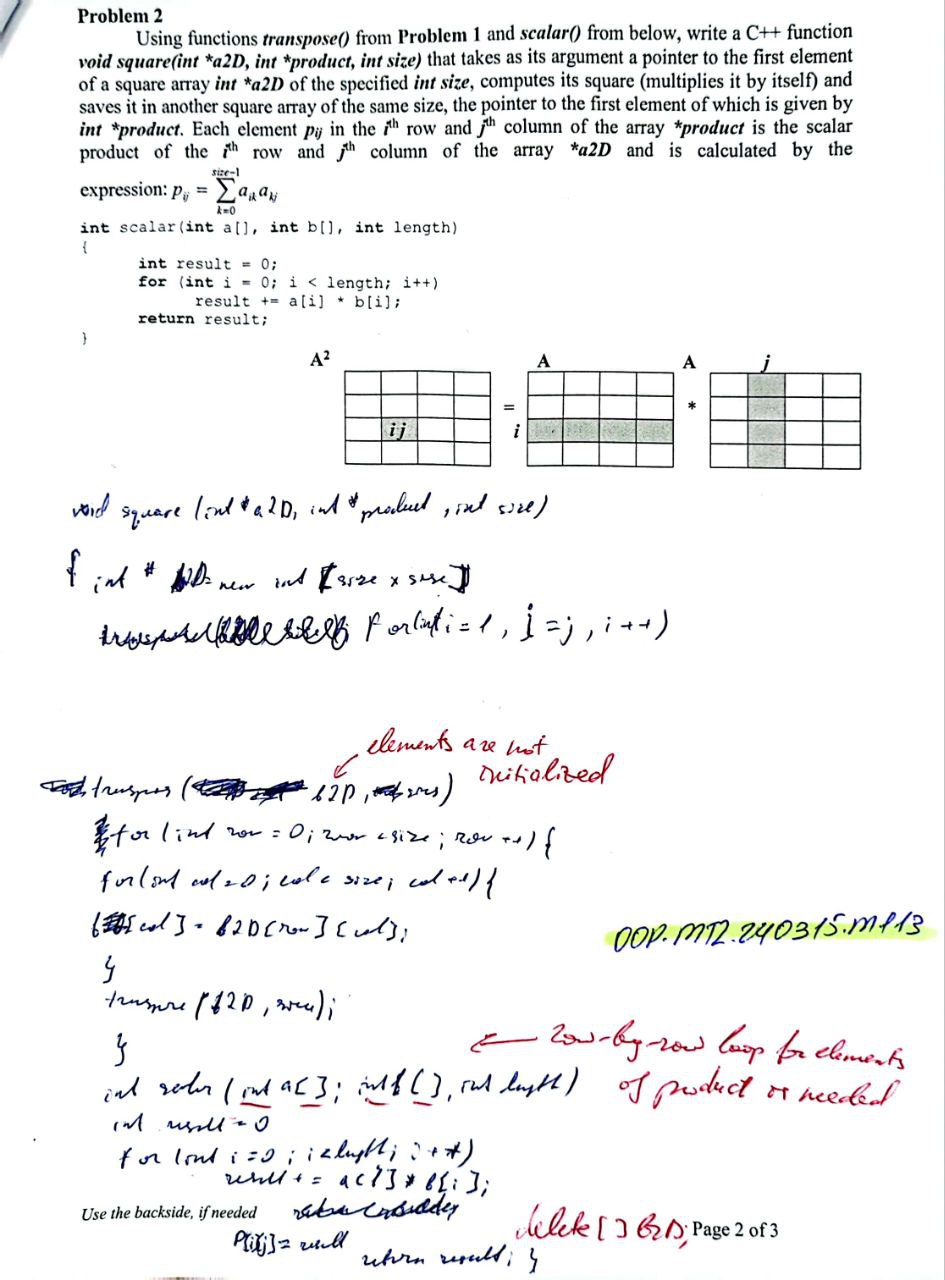 Problem 2
Using functions transpose() from Problem 1 and scalar() from below, write a C++ function
void square(int *a2D, int *product, int size) that takes as its argument a pointer to the first element
of a square array int *a2D of the specified int size, computes its square (multiplies it by itself) and
saves it in another square array of the same size, the pointer to the first element of which is given by
int *product. Each element pij in the ith row and jth column of the array *product is the scalar
product of the ith row and jth column of the array *a2D and is calculated by the
expression: pij = size-1 ∑ k=0 aik akj
int scalar(int a[], int b[], int length)
{
int result = 0;
for (int i = 0; i < length; i++)
result += a[i] * b[i];
return result;
}
A² A A j
= *
ij i
void square (int *a2D, int *product, int size)
{ int * = new int [size x size]
for(int i = 1, j = j, i++)
elements are not
initialized
b2D,
for (int row = 0; row < size; row ++) {
for(int col = 0; col < size; col ++) {
[col] = b2D[row][col];
}
(b2D, );
}
← row-by-row loop for elements
OOP.MT2.240315.M113
int scalar (int a[]; int b[], int length)
of product is needed
int result = 0
for (int i = 0; i < length; i++)
result += a[i] * b[i];
Use the backside, if needed
delete [] B2D; Page 2 of 3
P[i][j] = result
return result; }